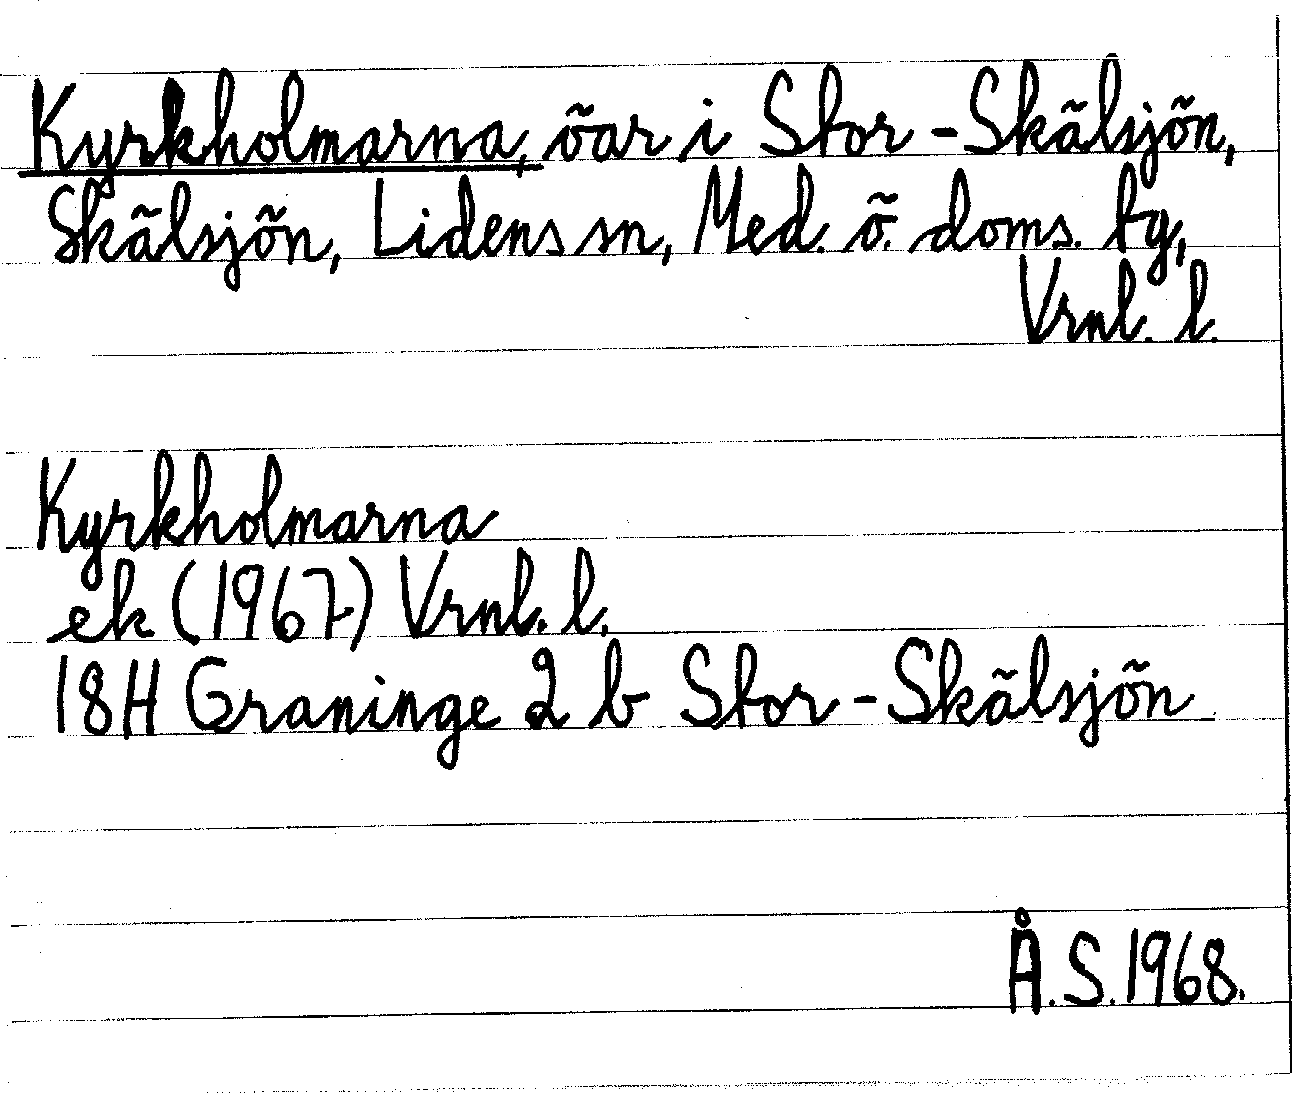 Kyrkholmarna, öar i Stor-Skälsjön,
Skälsjön, Lidens sn, Med. ö. doms. tg,
Vrnl. l.
Kyrkholmarna
ek (1967) Vrnl. l.
18H Graninge 2 b Stor-Skälsjön
Å.S. 1968.